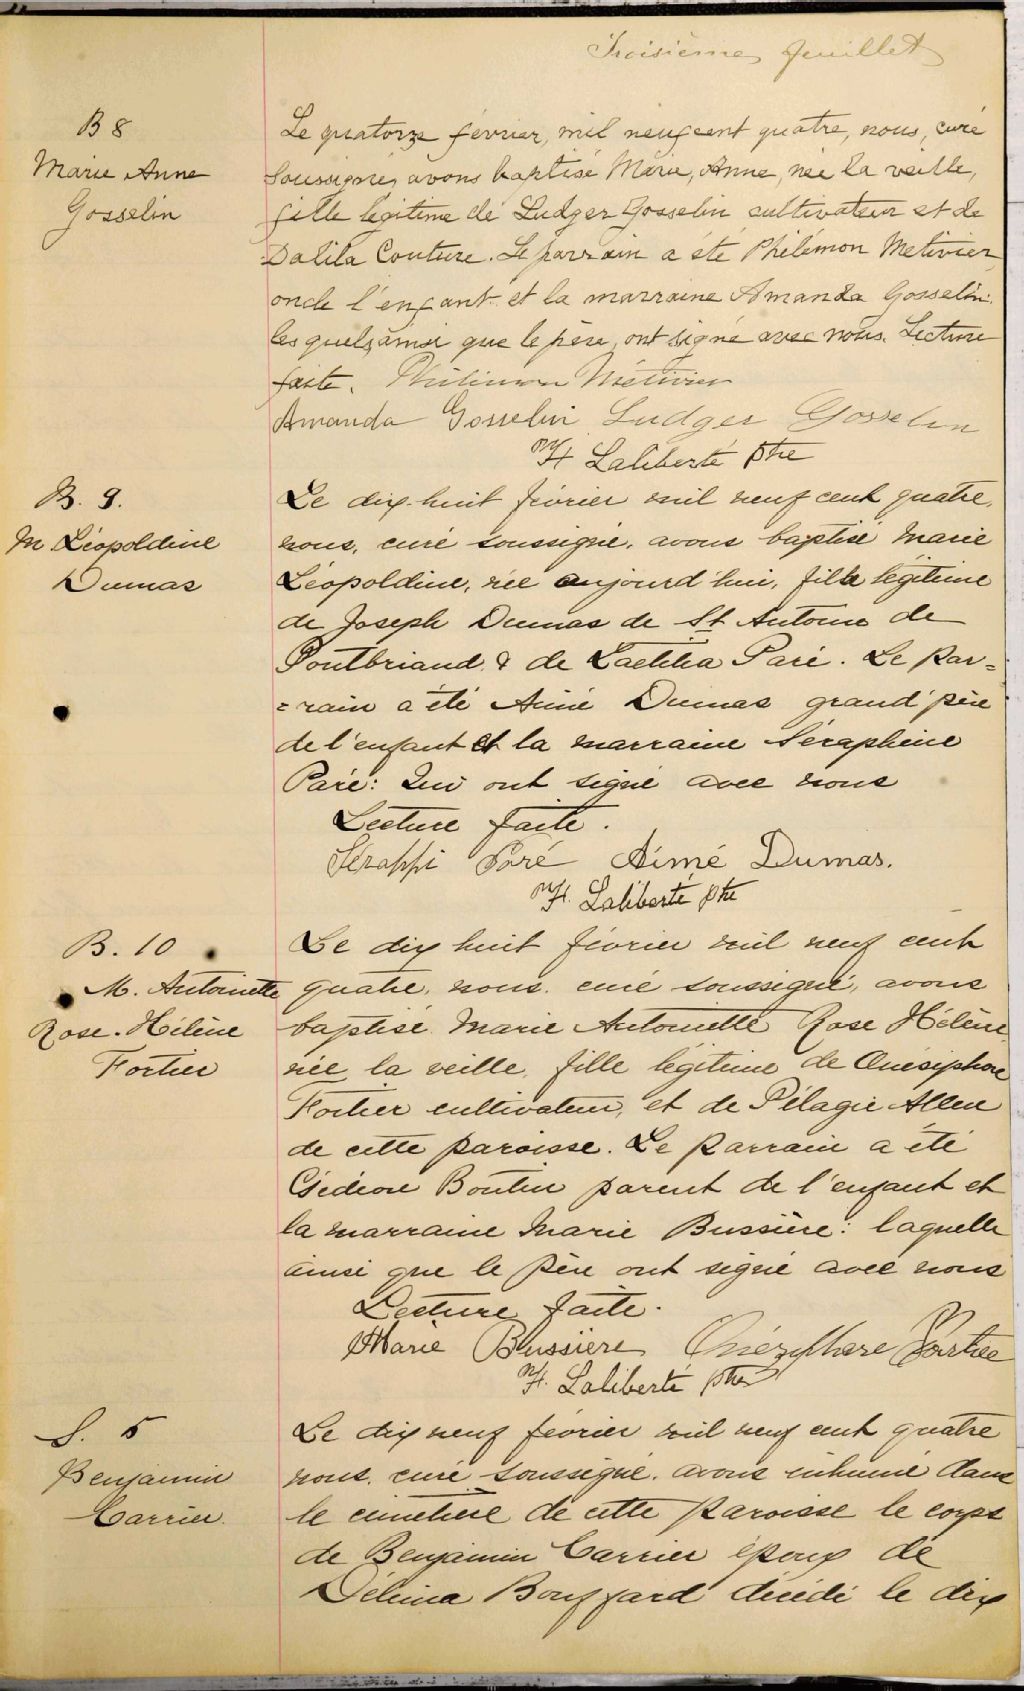 Troisième feuillet
B 8
Marie Anne
Gosselin
Le quatorze février, mil neuf cent quatre, nous, curé
soussigné, avons baptisé Marie, Anne, née la veille,
fille légitime de Ludger Gosselin cultivateur et de
Dalila Couture. Le parrain a été Philémon Metivier,
oncle l'enfant et la marraine Amanda Gosselin:
lesquels, ainsi que le père, ont signé avec nous. Lecture
faite. Philimon Métivier
Amanda Gosselin Ludger Gosselin
H. Laliberté ptre
B. 9.
M Léopoldine
Dumas
Le dix-huit février mil neuf cent quatre,
nous, curé soussigné, avons baptisé Marie
Léopoldine, née aujourd'hui, fille légitime
de Joseph Dumas de St Antoine de
Pontbriand & de Laetitia Paré. Le par=
=rain a été Aimé Dumas grand'père
de l'enfant et la marraine Séraphine
Paré: Qui ont signé avec nous
Lecture faite.
Séraphi Paré Aimé Dumas.
H. Laliberté ptre
B. 10
M. Antoinette
Rose-Hélène
Fortier
Le dix huit février mil neuf cent
quatre, nous, curé soussigné, avons
baptisé Marie Antoinette Rose Hélène
née la veille, fille légitime de Onésiphore
Fortier cultivateur, et de Pélagie Allen
de cette paroisse. Le parrain a été
Gédéon Boutin parent de l'enfant et
la marraine Marie Bussière: laquelle
ainsi que le père ont signé avec nous
Lecture faite.
Marie Bussière Onéziphore Fortier
H. Laliberté ptre
S. 5
Benjamin
Carrier
Le dix neuf février mil neuf cent quatre
nous, curé soussigné, avons inhumé dans
le cimetière de cette paroisse le corps
de Benjamin Carrier époux de
Délima Bouffard décédé le dix